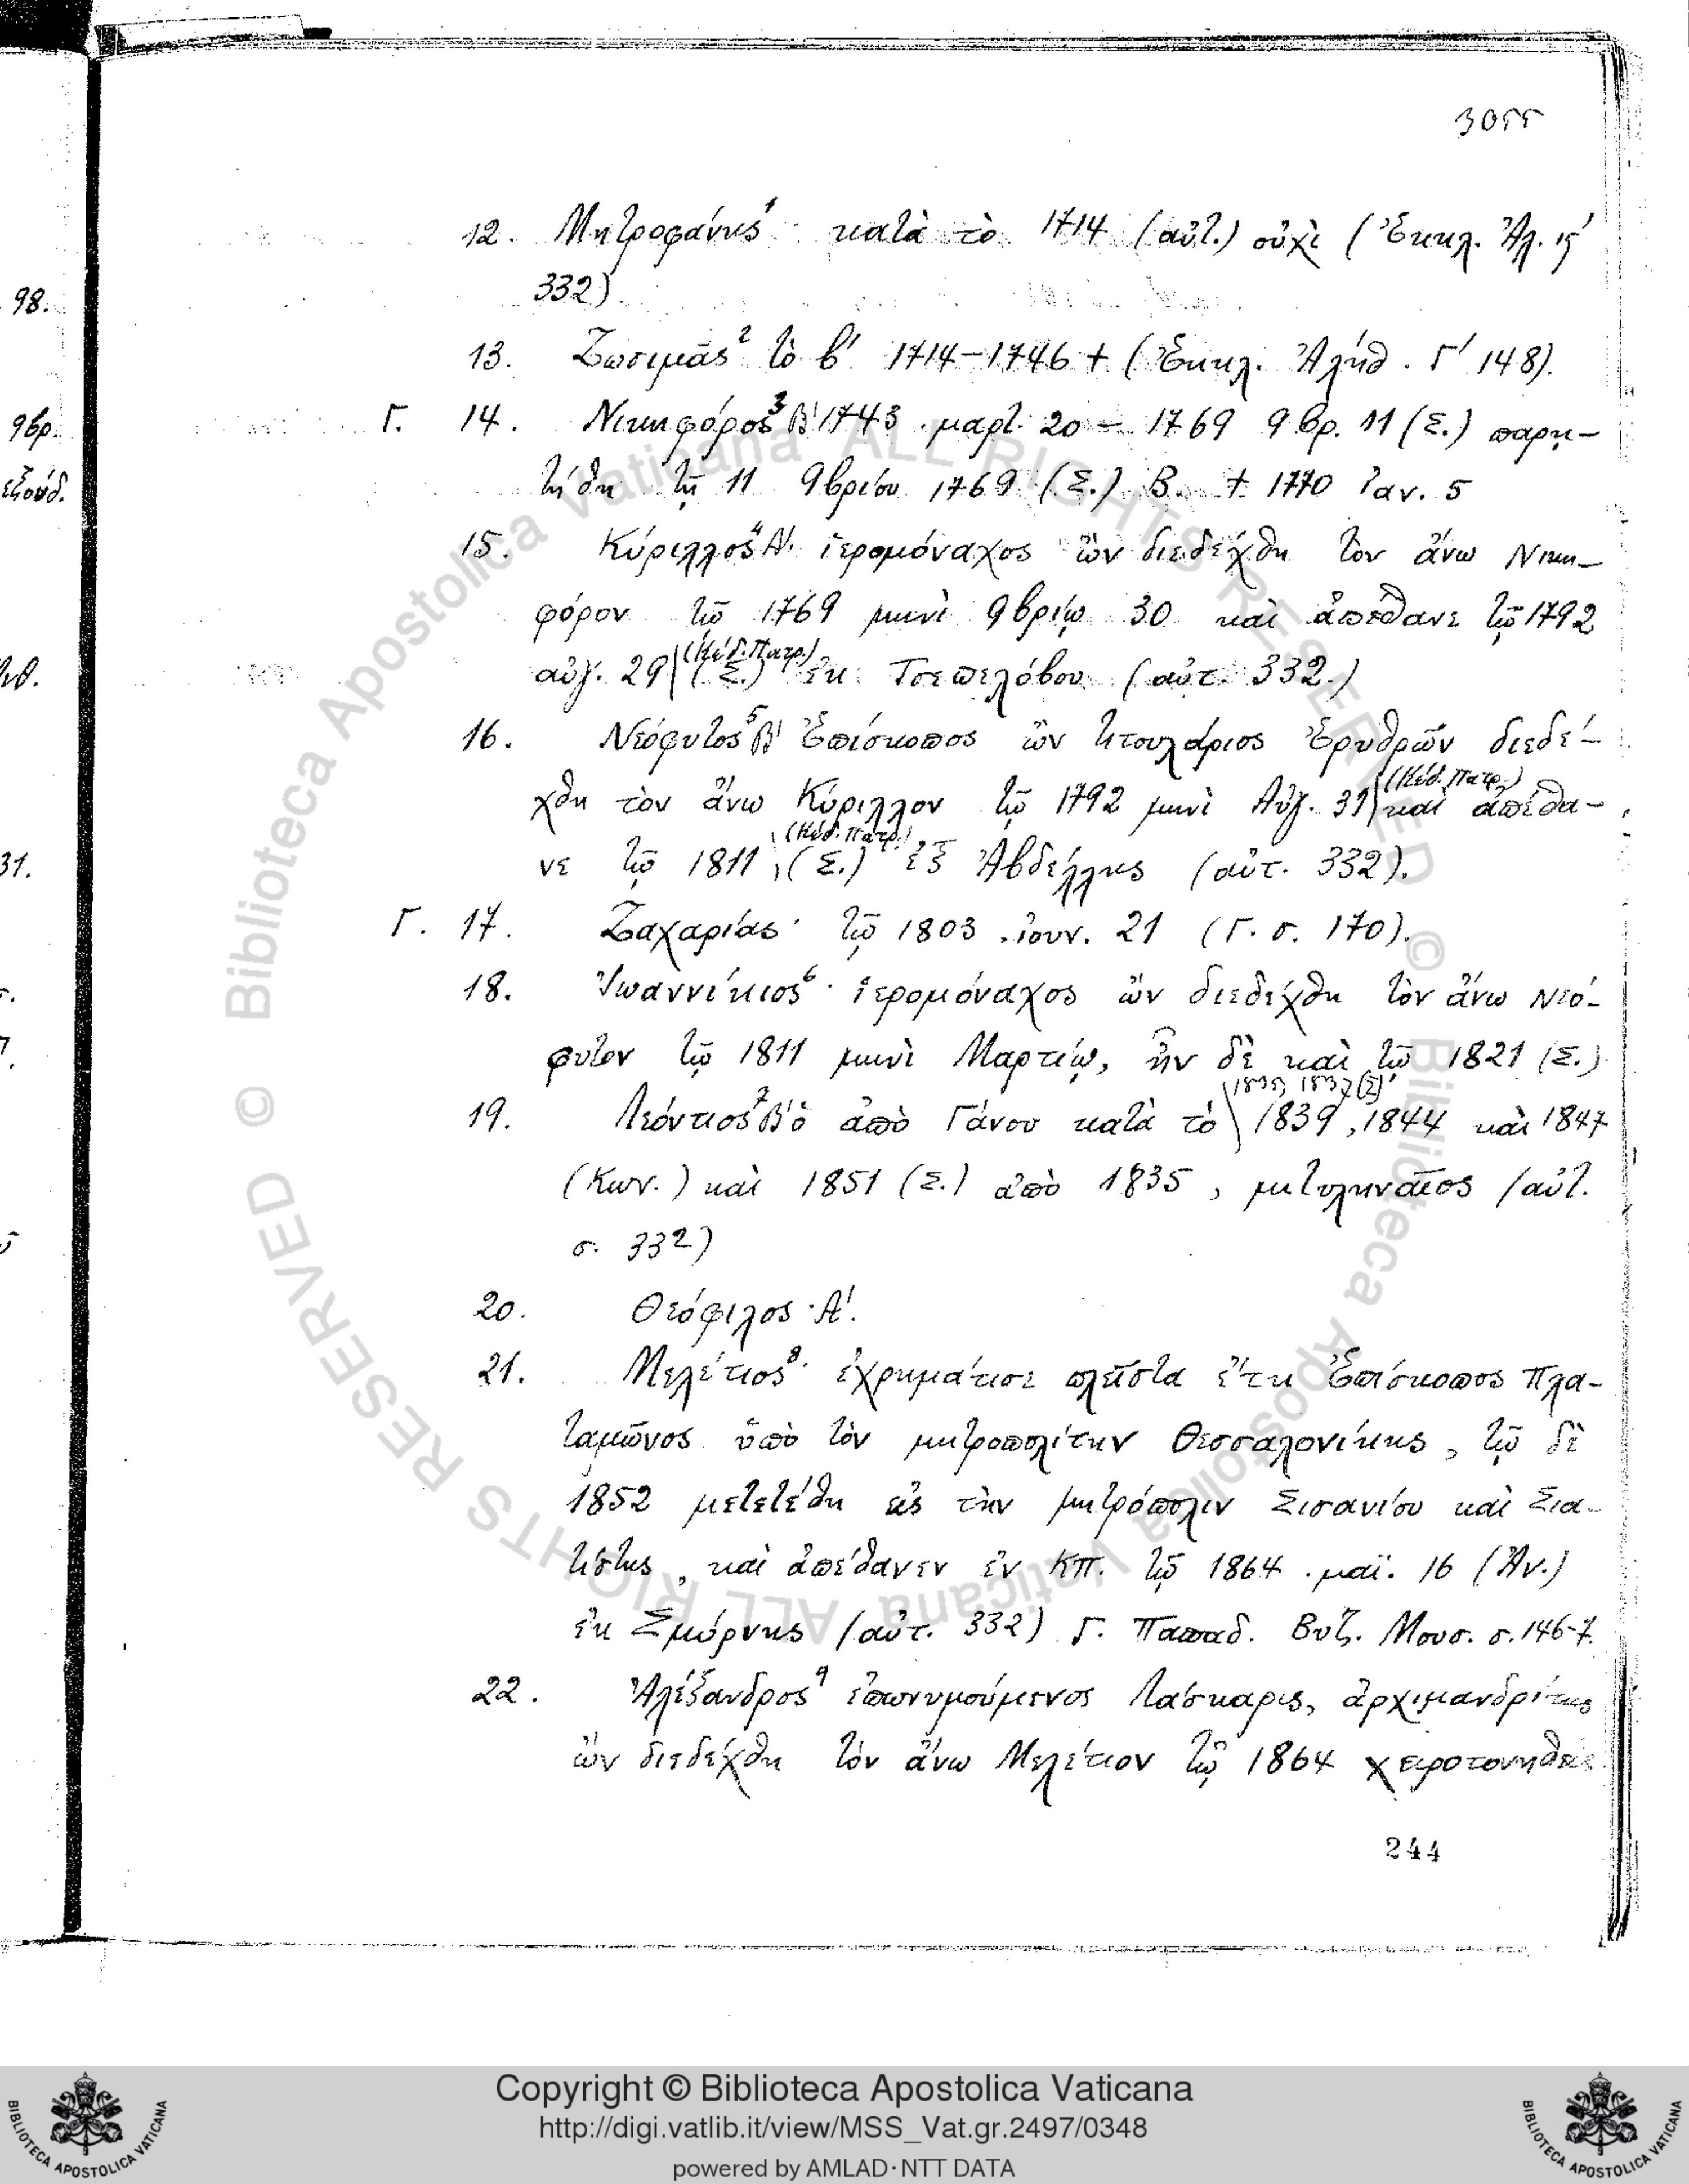 3055
12. Μητροφάνης¹ κατὰ τὸ 1714 (αὐτ.) οὐχὶ (Ἐκκλ. Ἀλ. ιϛ'
332)
13. Ζωσιμᾶς² τὸ β' 1714-1746 + (Ἐκκλ. Ἀλήθ. Γ' 148).
Γ. 14. Νικηφόρος³ Β' 1743 μαρτ. 20 - 1769 9βρ. 11 (Σ.) παρῃ-
τήθη τῇ 11 9βρίου 1769 (Σ.) Β. + 1770 ἰαν. 5
15. Κύριλλος⁴ Α'. ἱερομόναχος ὢν διεδέχθη τὸν ἄνω Νικη-
φόρον τῷ 1769 μηνὶ 9βρίῳ 30 καὶ ἀπέθανε τῷ 1792
(Κώδ. Πατρ.)
αὐγ. 29 (Σ.) ἐκ Τσεπελόβου (αὐτ. 332.)
16. Νεόφυτος⁵ Β' Ἐπίσκοπος ὢν τιτουλάριος Ἐρυθρῶν διεδέ-
(Κώδ. Πατρ.)
χθη τὸν ἄνω Κύριλλον τῷ 1792 μηνὶ Αὐγ. 31 καὶ ἀπέθα-
(Κώδ. Πατρ.)
νε τῷ 1811, (Σ.) ἐξ Ἀβδέλλης (αὐτ. 332).
Γ. 17. Ζαχαρίας· τῷ 1803 ἰουν. 21 (Γ. σ. 170).
18. Ἰωαννίκιος⁶· ἱερομόναχος ὢν διεδέχθη τὸν ἄνω Νεό-
φυτον τῷ 1811 μηνὶ Μαρτίῳ, ἦν δὲ καὶ τῷ 1821 (Σ.)
1835, 1837 (Σ)
19. Λεόντιος⁷ Β' ὁ ἀπὸ Γάνου κατὰ τὸ 1839, 1844 καὶ 1847
(Κων.) καὶ 1851 (Σ.) ἀπὸ 1835, μιτυληναῖος (αὐτ.
σ. 332)
20. Θεόφιλος· Α'.
21. Μελέτιος⁸· ἐχρημάτισε πλεῖστα ἔτη Ἐπίσκοπος Πλα-
ταμῶνος ὑπὸ τὸν μητροπολίτην Θεσσαλονίκης, τῷ δὲ
1852 μετετέθη εἰς τὴν μητρόπολιν Σισανίου καὶ Σια-
τίστης, καὶ ἀπέθανεν ἐν ΚΠ. τῷ 1864 μαΐ. 16 (Ἀν.)
ἐκ Σμύρνης (αὐτ. 332) Γ. Παπαδ. Βυζ. Μουσ. σ. 146-7.
22. Ἀλέξανδρος⁹ ἐπωνυμούμενος Λάσκαρις, ἀρχιμανδρίτης
ὢν διεδέχθη τὸν ἄνω Μελέτιον τῷ 1864 χειροτονηθεὶς
244
98.
9βρ.
31.
© Biblioteca Apostolica Vaticana ALL RIGHTS RESERVED © Biblioteca Apostolica Vaticana ALL RIGHTS RESERVED
Copyright © Biblioteca Apostolica Vaticana
http://digi.vatlib.it/view/MSS_Vat.gr.2497/0348
powered by AMLAD·NTT DATA
BIBLIOTECA APOSTOLICA VATICANA
BIBLIOTECA APOSTOLICA VATICANA